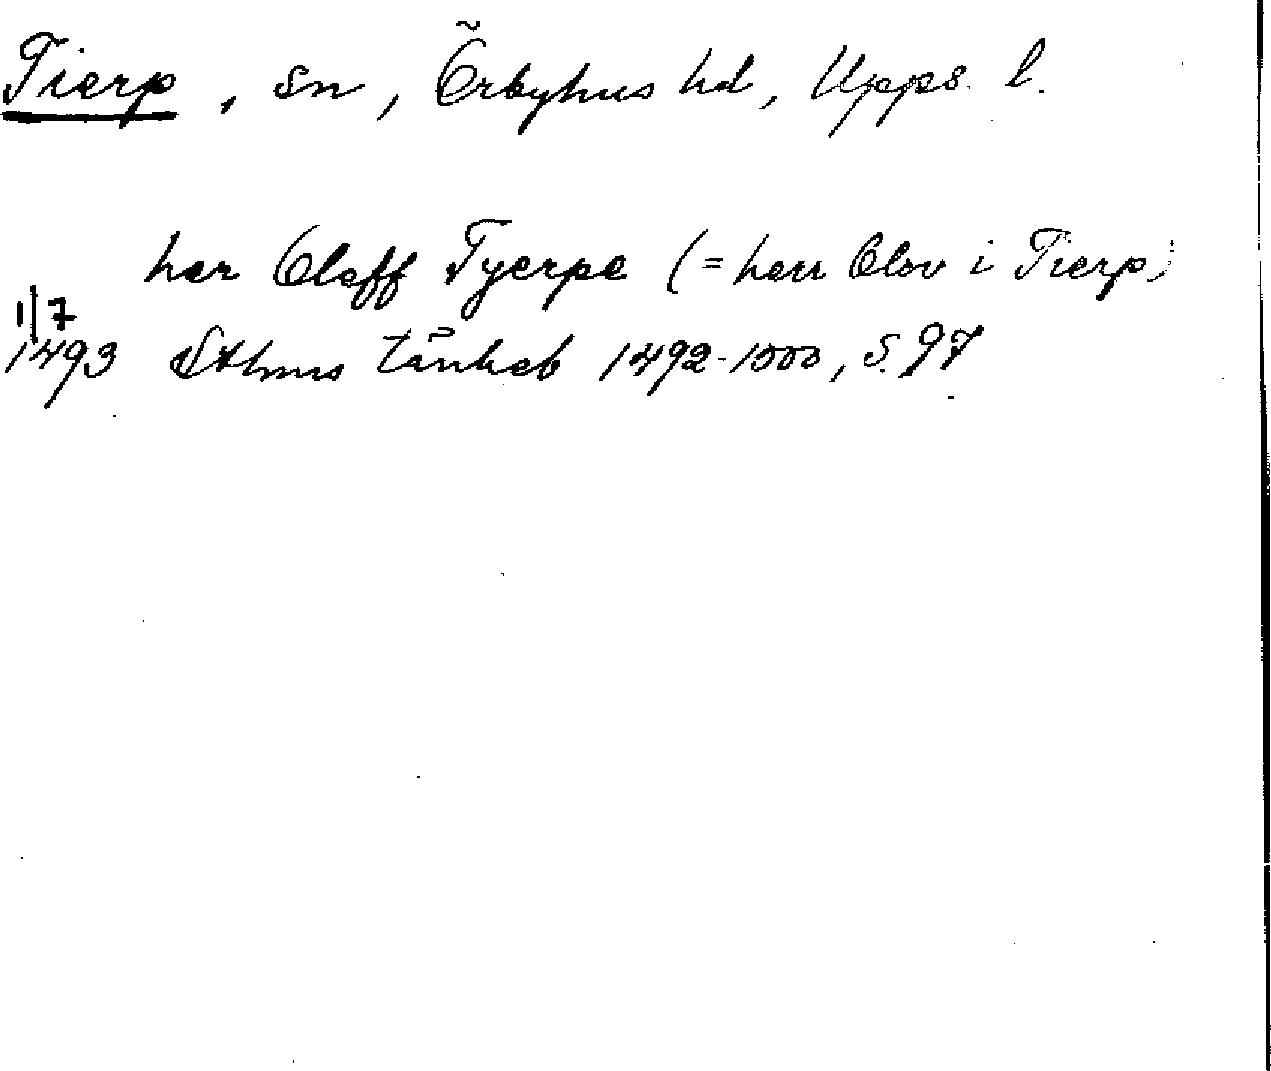 Tierp, sn, Örbyhus hd, Upps. l.
her Oleff Tyerpe (= herr Olov i Tierp)
1/7
1493 Sthms tänkeb 1492-1500, s. 97